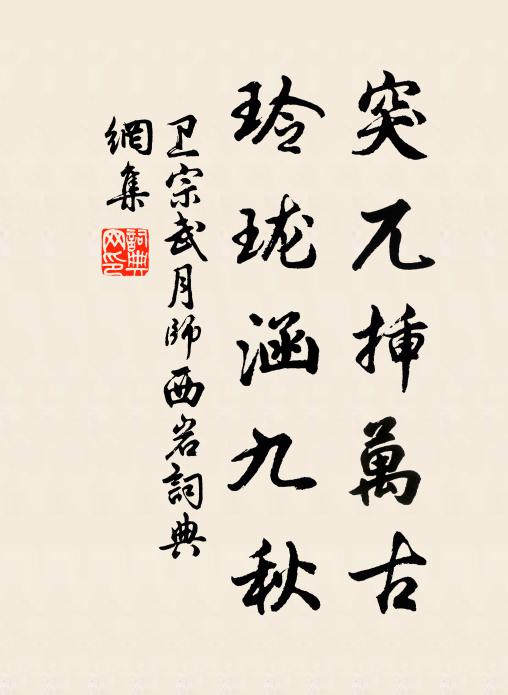 突兀挿萬古
玲珑涵九秋
卫宗武月師西岩詞典
網集
詞典網印